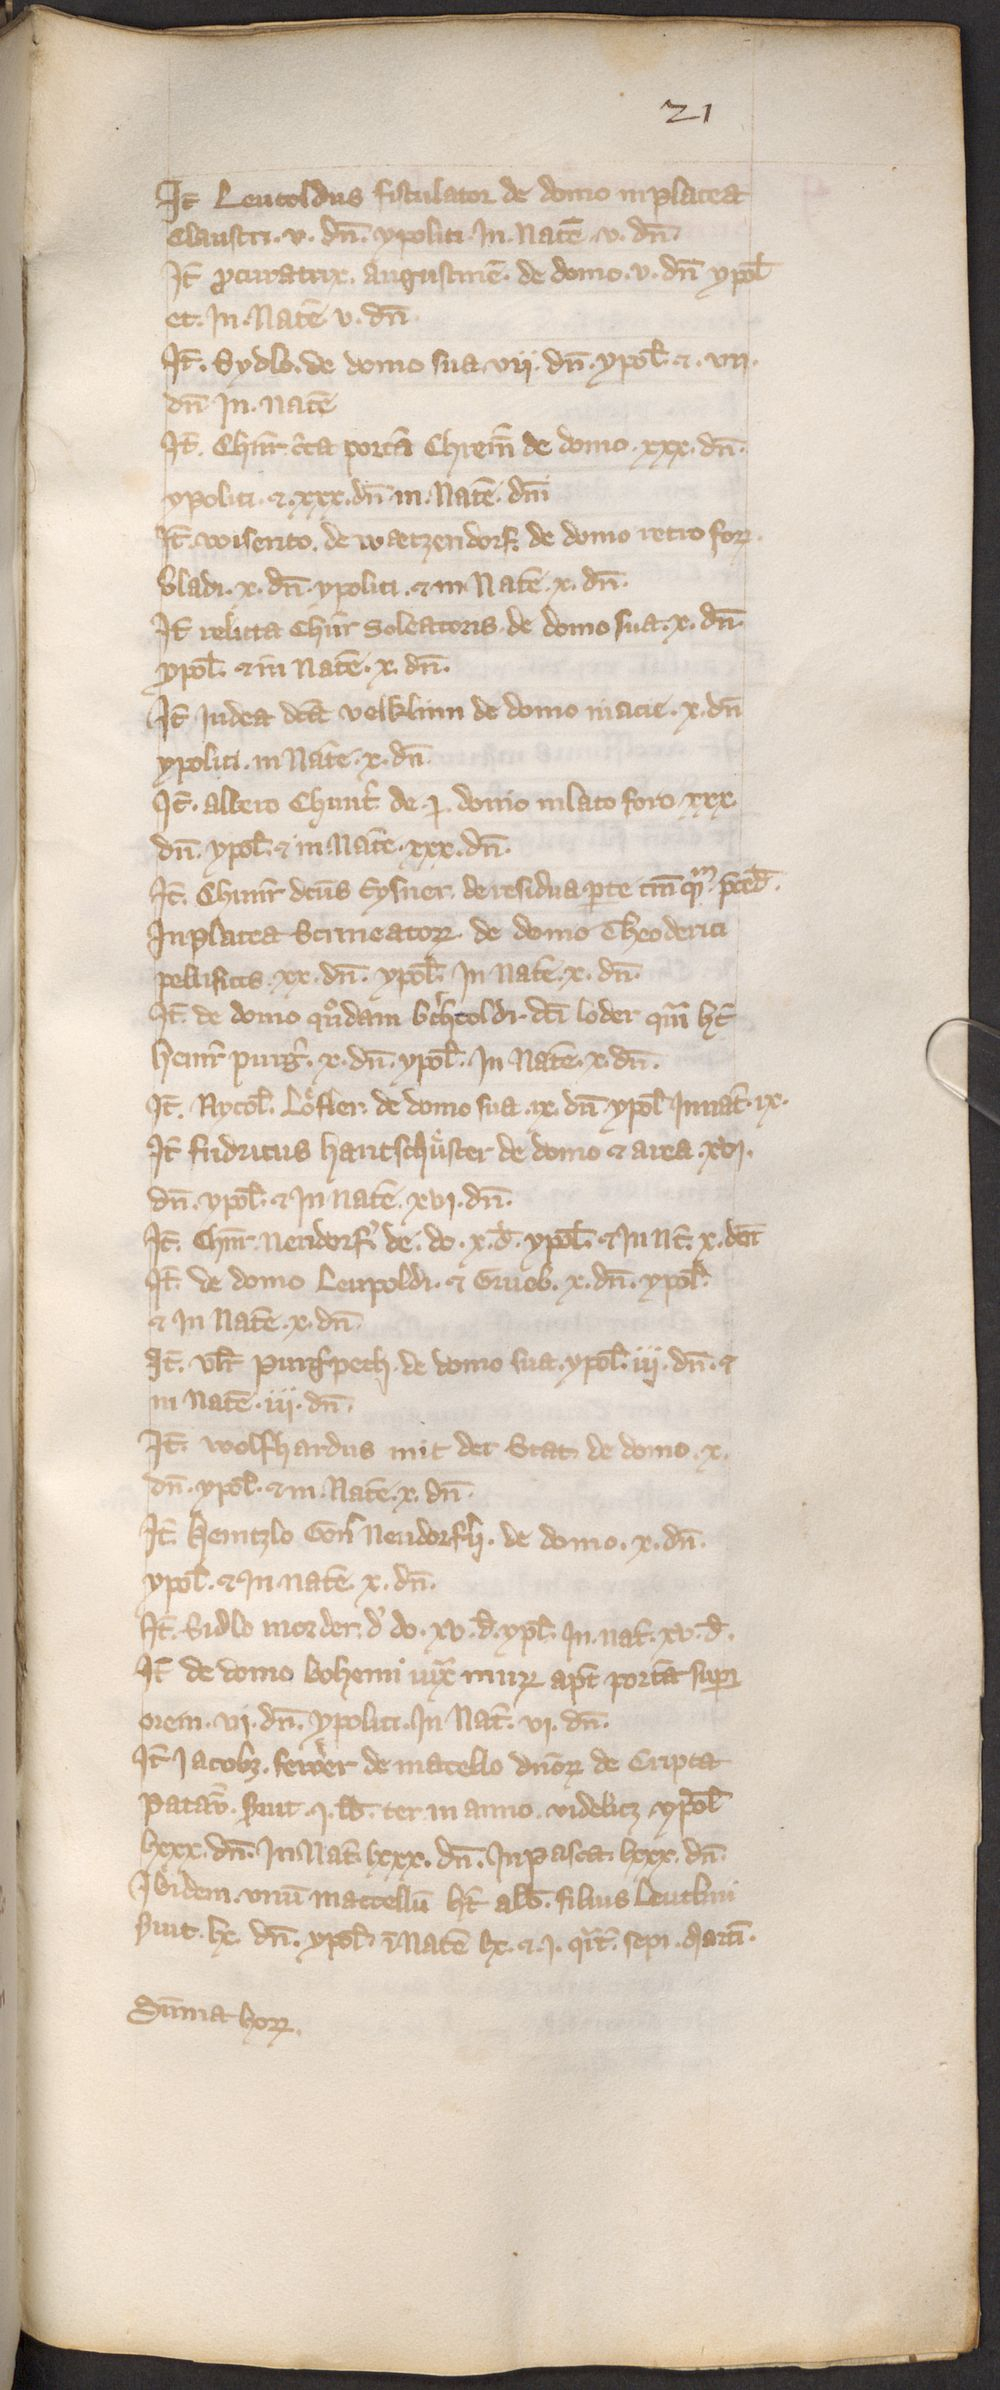 21
It̄ Leutoldus fistulator de domo in placea
Claustri · v · dn̄ · ypoliti · In · Natē · v · dn̄ ·
It̄ ꝓcuratrix · Augustinē · de domo · v · dn̄ ypol̄
et · In · Natē v · dn̄ ·
It̄ · Sydlo · de domo sua · vii · dn̄ · ypol̄ · et · vii ·
dn̄ In · Natē
It̄ · Chūr c̄ca portā Chrem̄ de domo · xxx · dn̄ ·
ypoliti · et · xxx · dn̄ in · Natē · dn̄i
It̄ · wisento · de watzendorf · de domo retro forꝝ ·
bladi · x · dn̄ · ypoliti · et in Natē · x · dn̄ ·
It̄ relicta Chūr Soleatoris · de domo sua · x · dn̄ ·
ypol̄ · et in Natē · x · dn̄ ·
It̄ Judea dcā velklinn de domo in acie · x · dn̄
ypoliti · in Natē · x · dn̄ ·
It̄ · albero Chunr̄ de · j · domo in lato foro · xxx ·
dn̄ · ypol̄ · et in · Natē · xxx · dn̄ ·
It̄ · Chunr̄ dcūs Eysner · de residua ꝑte tm̄ qm̄ · p̄ced̄ ·
In placea Scrineatorꝝ · de domo Theoderici
pellificis · xx · dn̄ · ypol̄ · In Natē · x · dn̄ ·
It̄ · de domo quōdam b̄chtoldi · dc̄i loder qm̄ ht̄
heinr̄ purgr̄ · x · dn̄ · ypol̄ · In Natē · x · dn̄ ·
It̄ · Nycol̄ · Löffler · de domo sua · ix · dn̄ · ypol̄ In nat̄ · ix ·
It̄ fridricus hantschůster de domo et area · xvi ·
dn̄ · ypol̄ · et In Natē · xvi · dn̄ ·
It̄ · Chūr · Neudorf̄ de · do · x · d̄ · ypol̄ · et In Nt̄ · x · dn̄
It̄ · de domo Leupoldi · et Grueb · x · dn̄ · ypol̄
et In Natē · x · dn̄ ·
It̄ · vlr̄ purgpech · de domo sua · ypol̄ · iii · dn̄ · et
in Natē · iii · dn̄ ·
It̄ · wolfhardus mit der Stat · de domo · x ·
dn̄ · ypol̄ · et in · Natē · x · dn̄ ·
It̄ · heintzlo Neudorfh · de domo · x · dn̄ ·
ypol̄ · et In · natē · x · dn̄ ·
It̄ · Sidlo morder · d̄ do · xv · d̄ · ypl̄ · In · nat̄ · xv · d̄ ·
It̄ de domo bohemi iux̄ murꝝ apt̄ portā superi
orem · vi · dn̄ · ypoliti · In Nat̄ · vi · dn̄ ·
It̄ Jacobꝫ · de macello dn̄orꝝ de Cripta
Patav̄ · ẜuit · j · lb̄ · ter in anno · videlicꝫ · ypol̄
lxxx · dn̄ · In Nat̄ · lxxx · dn̄ · In pasca · lxxx · dn̄ ·
Ibidem · vnū maccellū ht̄ alb̄ · filius Leutlini
ẜuit · lx · dn̄ · ypol̄ · ī Natē lx · et · j · qr̄t̄ · sepi · Martī ·
Sūma horꝝ ·